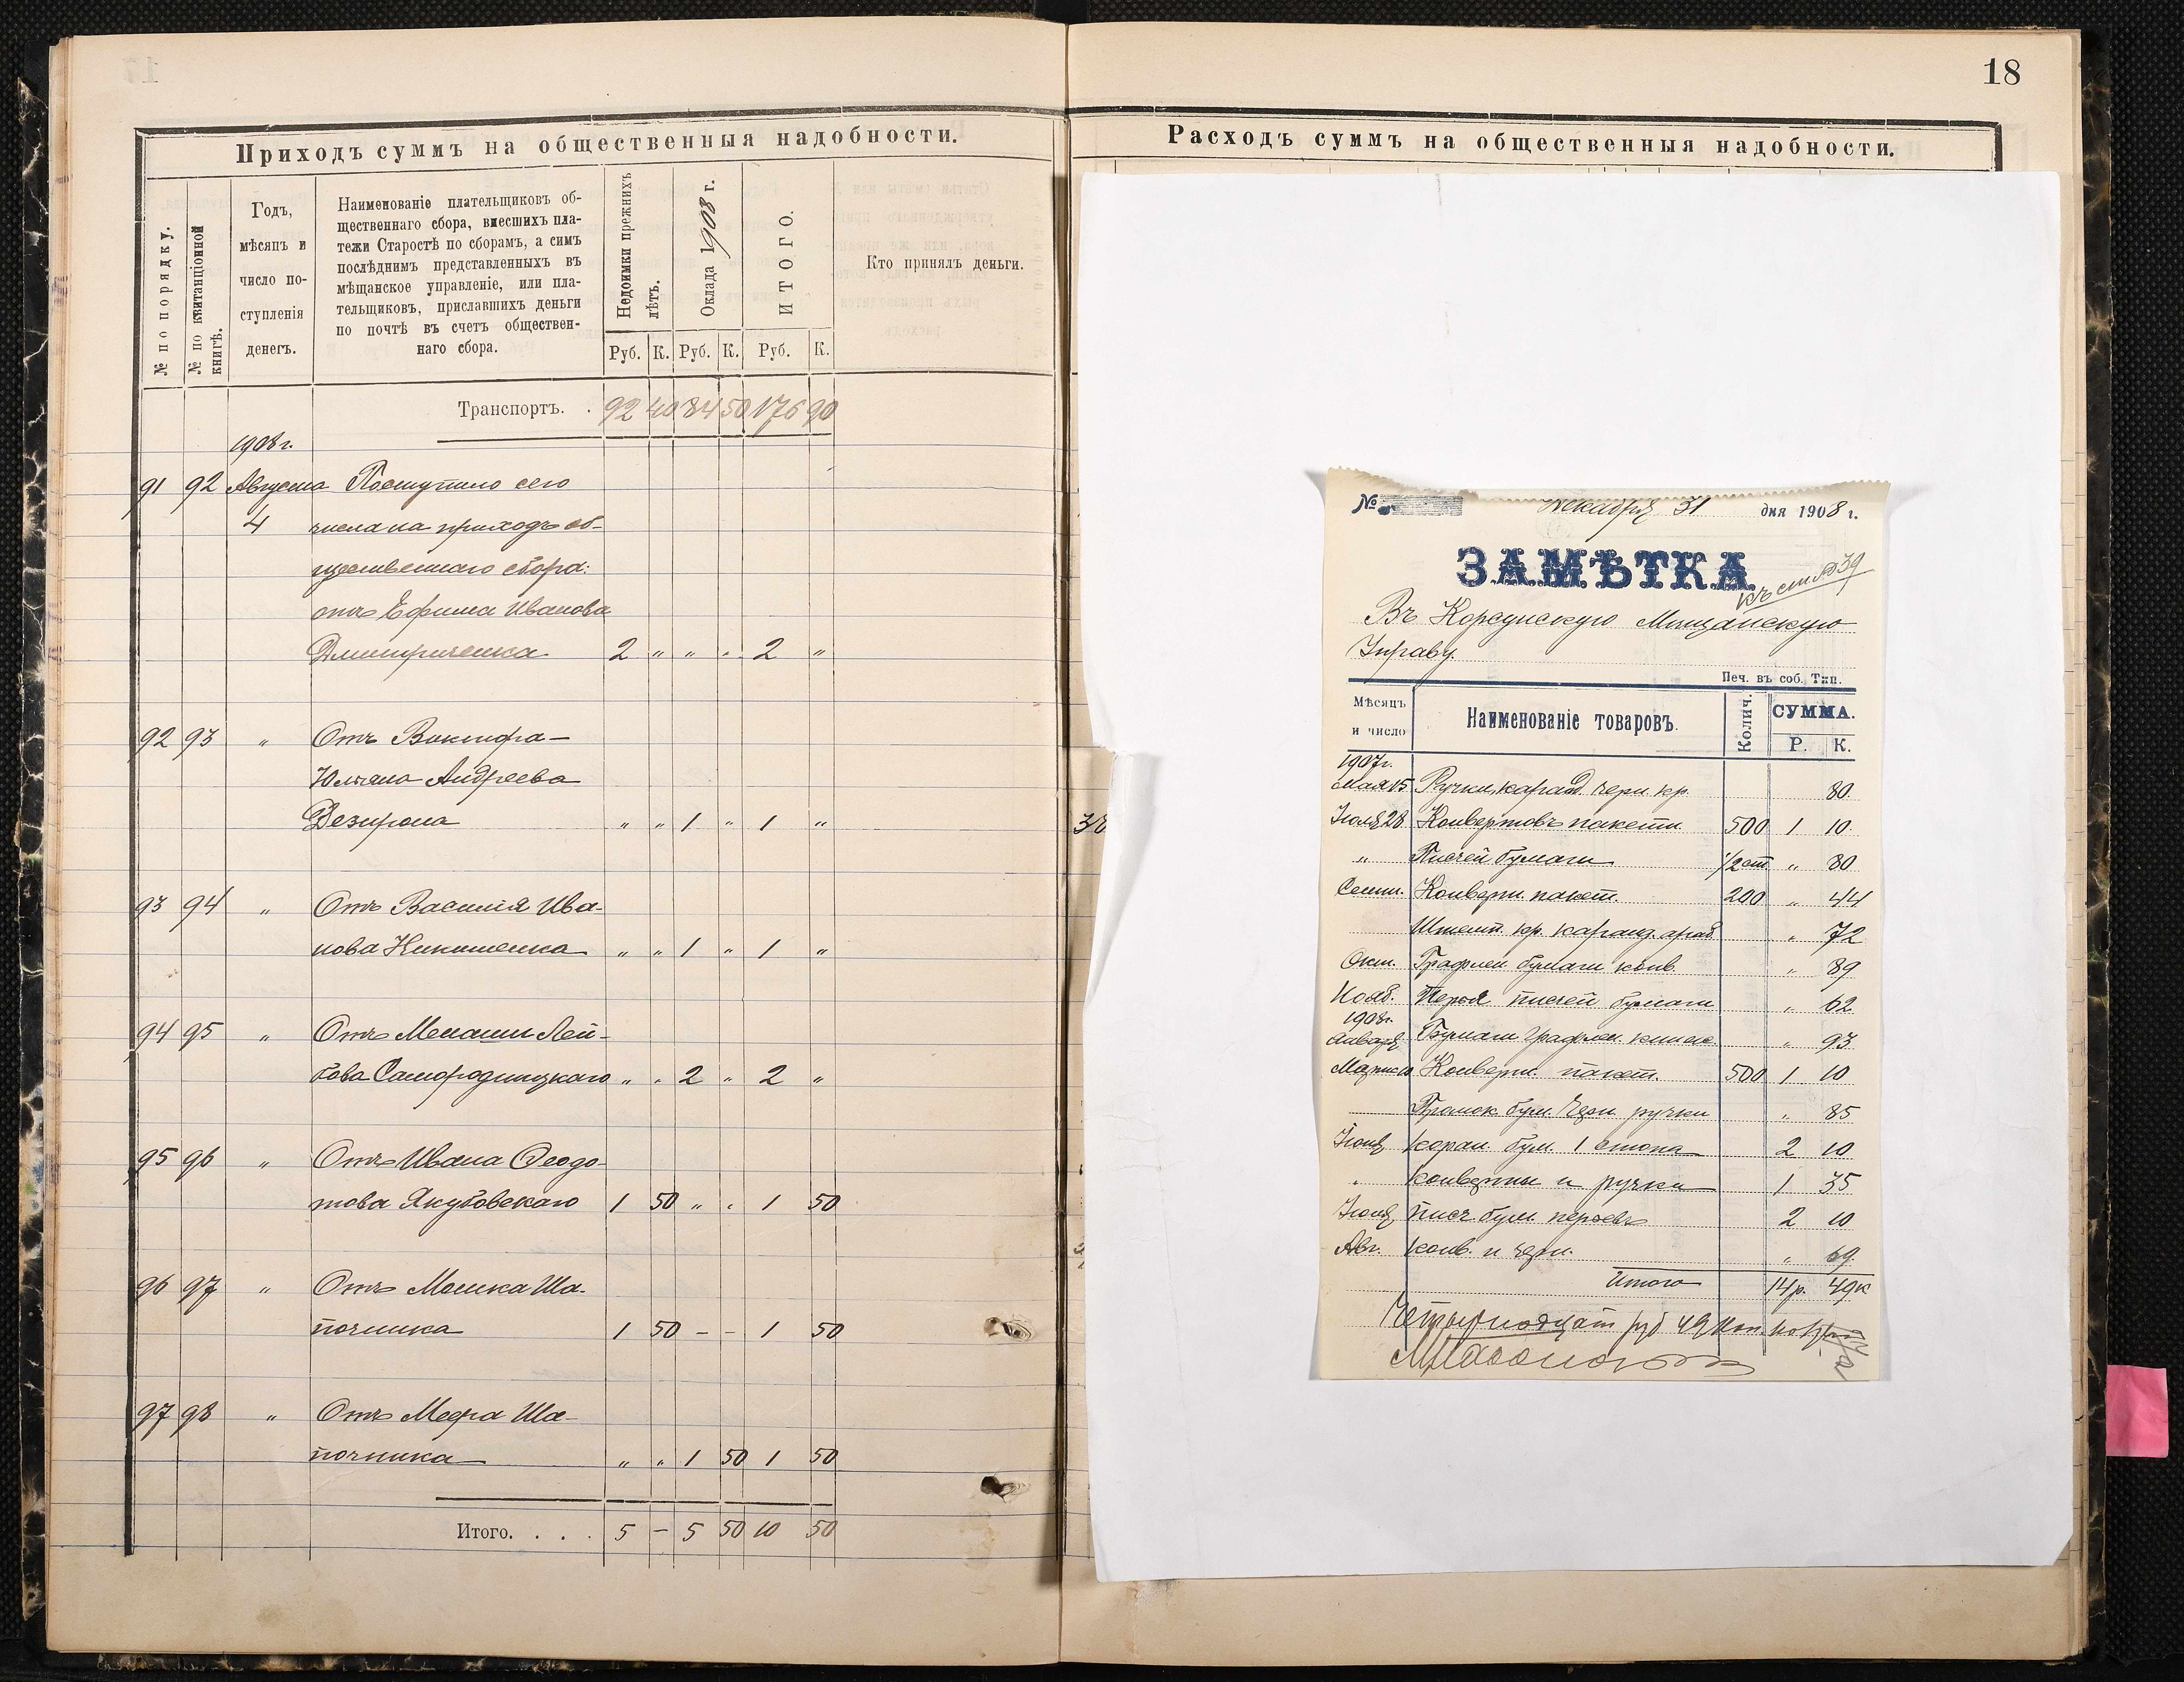 18
Приходъ суммъ на общественныя надобности.
№ по порядку.
№ по квитанціонной книгѣ.
Годъ,
мѣсяцъ и
число по-
ступленія
денегъ.
Наименованіе плательщиковъ об-
щественнаго сбора, внесшихъ пла-
тежи Старостѣ по сборамъ, а симъ
послѣднимъ представленныхъ въ
мѣщанское управленіе, или пла-
тельщиковъ, приславшихъ деньги
по почтѣ въ счетъ обществен-
наго сбора.
Недоимки прежнихъ лѣтъ.
Оклада 1908 г.
ИТОГО.
Кто принялъ деньги.
Руб. К. Руб. К. Руб. К.
Транспортъ. . 92 40 84 50 176 90
1908 г.
91 92 Августа Поступило сего
4 числа на приходъ об-
щественнаго сбора:
отъ Ефима Иванова
Дмитриченка 2 " " " 2 "
92 93 " Отъ Виктора-
Юльяна Андреева
Дезирона " " 1 " 1 "
93 94 " Отъ Василія Ива-
нова Никитенка " " 1 " 1 "
94 95 " Отъ Менаши Лей-
бова Самородницкаго " " 2 " 2 "
95 96 " Отъ Ивана Ѳеодо-
това Якубовскаго 1 50 " " 1 50
96 97 " Отъ Мошка Ша-
почника 1 50 - - 1 50
97 98 " Отъ Меера Ша-
почника " " 1 50 1 50
Итого. . . . 5 - 5 50 10 50
Расходъ суммъ на общественныя надобности.
№ Декабря 31 дня 1908 г.
ЗАМѢТКА
къ ст № 39
Въ Корсунскую Мѣщанскую
Управу
Печ. въ соб. Тип.
Мѣсяцъ и число
Наименованіе товаровъ.
Колич.
СУММА.
Р. К.
1907 г.
Мая 15 Ручки, каранд. черн. кр. 80
Іюля 28 Конвертовъ пакетн. 500 1 10
" Писчей бумаги 1/2 ст " 80
Сент. Конверт. пакет. 200 " 44
Штемп. кр. каранд. " 72
Окт. Графлен. бумаги конв. " 89
Нояб. Перья писчей бумаги " 62
1908 г.
Января Бумаги графлен. " 93
Марта 10 Конверт. пакет. 500 1 10
Промок. бум. Черн. ручки " 85
Іюня бум. 1 стопа 2 10
" конверты и ручки 1 35
Іюля Писч. бум. перьевъ 2 10
Авг. конв. и черн. " 69
Итого 14 р. 49 к
Четырнадцат руб 49 коп.